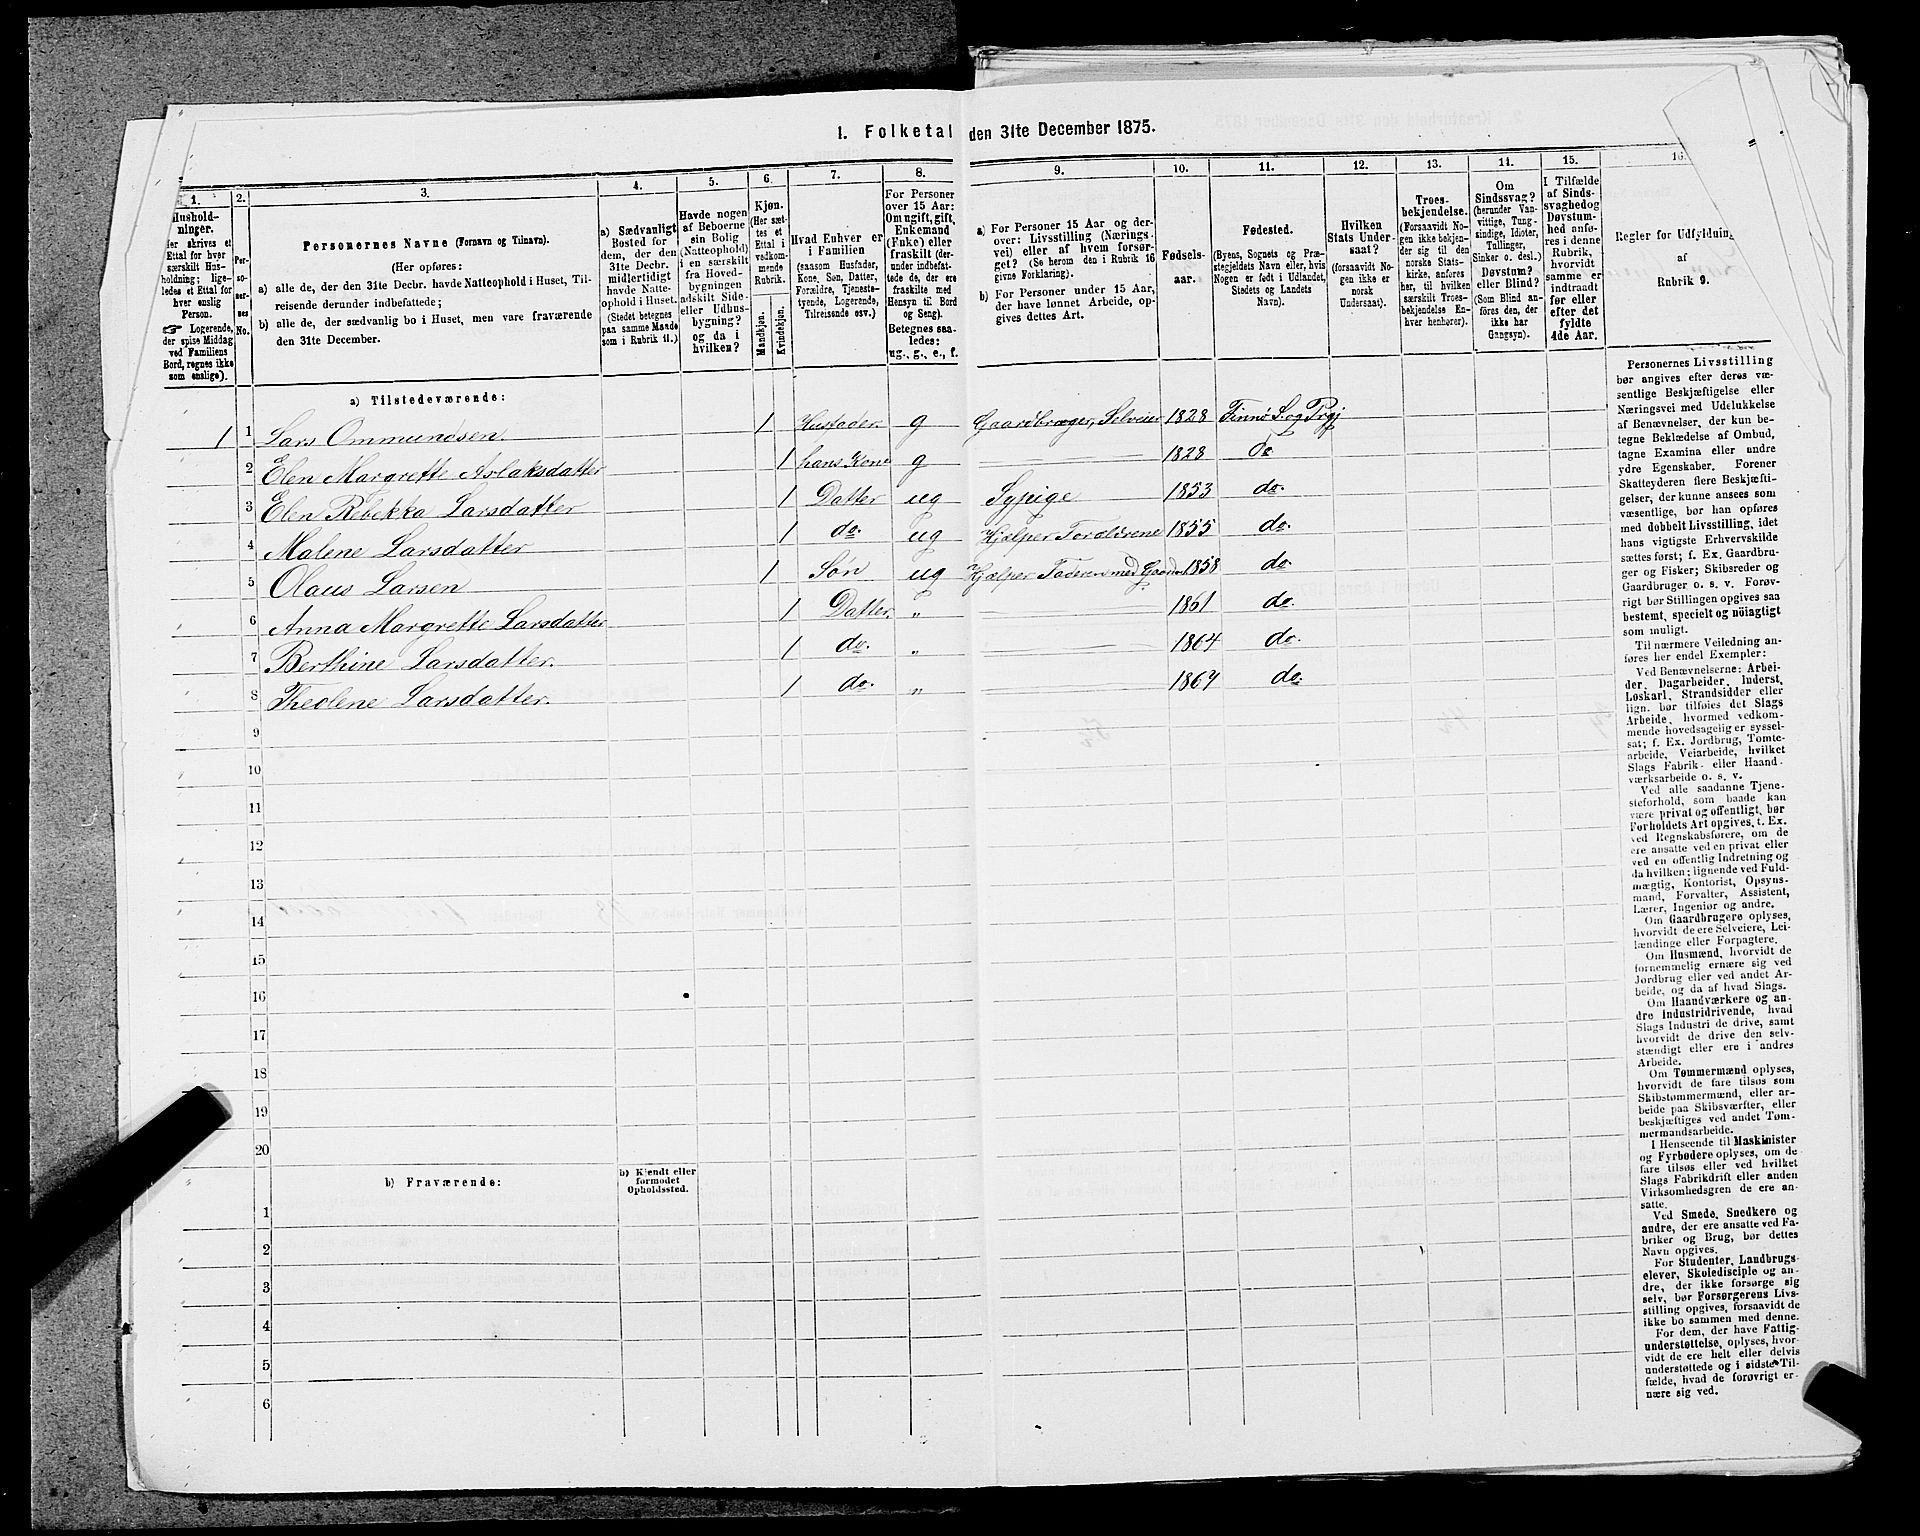 1. Folketal den 31te December 1875.
1. 2. 3. 4. 5. 6. 7. 8. 9. 10. 11. 12. 13. 14. 15. 16.
Hushold-
ninger.
Her skrives et
Ettal for hver
særskilt Hus-
holdning; lige-
ledes et Ettal for
hver enslig
Person.
☞ Logerende,
der spise Middag
ved Familiens
Bord, regnes ikke
som enslige).
Per-
so-
ner-
nes
No.
Personernes Navne (Fornavn og Tilnavn).
(Her opføres:
a) alle de, der den 31te Decbr. havde Natteophold i Huset, Til-
reisende derunder indbefattede;
b) alle de, der sædvanlig bo i Huset, men vare fraværende
den 31te December.
a) Sædvanligt
Bosted for
dem, der den
31te Decbr.
midlertidigt
havde Natte-
ophold i Huset.
(Stedet betegnes
paa samme Maade
som i Rubrik 11.)
Havde nogen
af Beboerne
sin Bolig
(Natteophold)
i en særskilt
fra Hoved-
bygningen
adskilt Side-
eller Udhus-
bygning?
og da i
hvilken?
Kjøn.
(Her sæt-
tes et
Ettal i
vedkom-
mende
Rubrik.
Mandkjøn.
Kvindekjøn.
Hvad Enhver er
i Familien
(saasom Husfader,
Kone, Søn, Datter,
Forældre, Tjeneste-
tyende, Logerende,
Tilreisende osv.)
For Personer
over 15 Aar:
Om ugift, gift,
Enkemand
(Enke) eller
fraskilt (der-
under indbefat-
tede de, der ere
fraskilte med
Hensyn til Bord
og Seng).
Betegnes saa-
ledes:
ug., g., e., f.
a) For Personer 15 Aar og der-
over: Livsstilling (Nærings-
vei) eller af hvem forsør-
get? (Se herom den i Rubrik 16
givne Forklaring).
b) For Personer under 15 Aar,
der have lønnet Arbeide, op-
gives dettes Art.
Fødsels-
aar.
Fødested.
(Byens, Sognets og Præ-
stegjeldets Navn eller, hvis
Nogen er født i Udlandet,
Stedets og Landets
Navn).
Hvilken
Stats Under-
saat?
(forsaavidt No-
gen ikke er
norsk
Undersaat).
Troes-
bekjendelse.
(Forsaavidt No-
gen ikke bekjen-
der sig til den
norske Stats-
kirke, anføres
her, til hvilken
særskilt Troes-
bekjendelse En-
hver henhører).
Om
Sindssvag?
(herunder Van-
vittige, Tung-
sindige, Idioter,
Tullinger,
Sinker o. desl.)
Døvstum?
eller Blind?
(Som Blind an-
føres den, der
ikke har
Gangsyn).
I Tilfælde
af Sinds-
svaghed og
Døvstum-
hed anfø-
res i denne
Rubrik,
hvorvidt
samme er
indtraadt
før eller
efter det
fyldte
4de Aar.
Regler for Udfyldning
af
Rubrik 9.
a) Tilstedeværende:
1 1 Lars Ommundsen. 1 Husfader. g Gaardbruger, Selveier 1828 Finnø S. og Prgj
2 Elen Margrette Aslaksdatter 1 hans Kone g 1828 do
3 Elen Rebekka Larsdatter 1 Datter ug Sypige 1853 do.
4 Malene Larsdatter 1 do. ug Hjælper Forældrene 1855 do.
5 Olaus Larsen 1 Søn ug Hjælper Faderen med Gaarden 1858 do.
6 Anna Margrette Larsdatter 1 Datter. „ 1861 do.
7 Berthine Larsdatter. 1 do. „ 1864 do.
8 Theolene Larsdatter. 1 do. „ 1867 do.
9
10
11
12
13
14
15
16
17
18
19
20
b) Fraværende:
b) Kjendt eller
formodet
Opholdssted.
1
2
3
4
5
6
Personernes Livsstilling
bør angives efter deres væ-
sentlige Beskjæftigelse eller
Næringsvei med Udelukkelse
af Benævnelser, der kun be-
tegne Beklædelse af Ombud,
tagne Examina eller andre
ydre Egenskaber. Forener
Skatteyderen flere Beskjæfti-
gelser, der kunne ansees som
væsentlige, bør han opføres
med dobbelt Livsstilling, idet
hans vigtigste Erhvervskilde
sættes først; f. Ex. Gaardbru-
ger og Fisker; Skibsreder og
Gaardbruger o. s. v. Forøv-
rigt bør Stillingen opgives saa
bestemt, specielt og nöiagtigt
som muligt.
Til nærmere Veiledning an-
føres her endel Exempler:
Ved Benævnelserne: Arbei-
der, Dagarbeider, Inderst,
Løskarl, Strandsidder eller
lign. bør tilføies det Slags
Arbeide, hvormed vedkom-
mende hovedsagelig er syssel-
sat; f. Ex. Jordbrug, Tomte-
arbeide, Veiarbeide, hvilket
Slags Fabrik- eller Haand-
værksarbeide o. s. v.
Ved alle saadanne Tjene-
steforhold, som baade kan
være privat og offentligt, bør
Forholdets Art opgives, t. Ex.
ved Regnskabsførere, om de
ere ansatte ved en privat eller
ved en offentlig Indretning og
da hvilken; lignende ved Fuld-
mægtig, Kontorist, Opsyns-
mand, Forvalter, Assistent,
Lærer, Ingeniør og andre.
Om Gaardbrugere oplyses,
hvorvidt de ere Selveiere, Lei-
lændinge eller Forpagtere.
Om Husmænd, hvorvidt de
fornemmelig ernære sig ved
Jordbrug eller ved andet Ar-
beide, og da af hvad Slags.
Om Haandværkere og an-
dre Industridrivende, hvad
Slags Industri de drive, samt
hvorvidt de drive den selv-
stændigt eller ere i andres
Arbeide.
Om Tømmermænd oplyses,
hvorvidt de fare tilsøs som
Skibstømmermænd, eller ar-
beide paa Skibsværfter, eller
beskjæftiges ved andet Tøm-
mermandsarbeide.
I Henseende til Maskinister
og Fyrbødere oplyses, om de
fare tilsøs eller ved hvilket
Slags Fabrikdrift eller anden
Virksomhedsgren de ere an-
satte.
Ved Smede, Snedkere og
andre, der ere ansatte ved Fa-
briker og Brug, bør dettes
Navn opgives.
For Studenter, Landbrugs-
elever, Skoledisciple og an-
dre, der ikke forsørge sig
selv, bør Forsørgerens Livs-
stilling opgives, forsaavidt de
ikke bo sammen med denne.
For dem, der have Fattig-
understøttelse, oplyses, hvor-
vidt de ere helt eller delvis
understøttede og i sidste Til-
fælde, hvad de forøvrigt er-
nære sig ved.